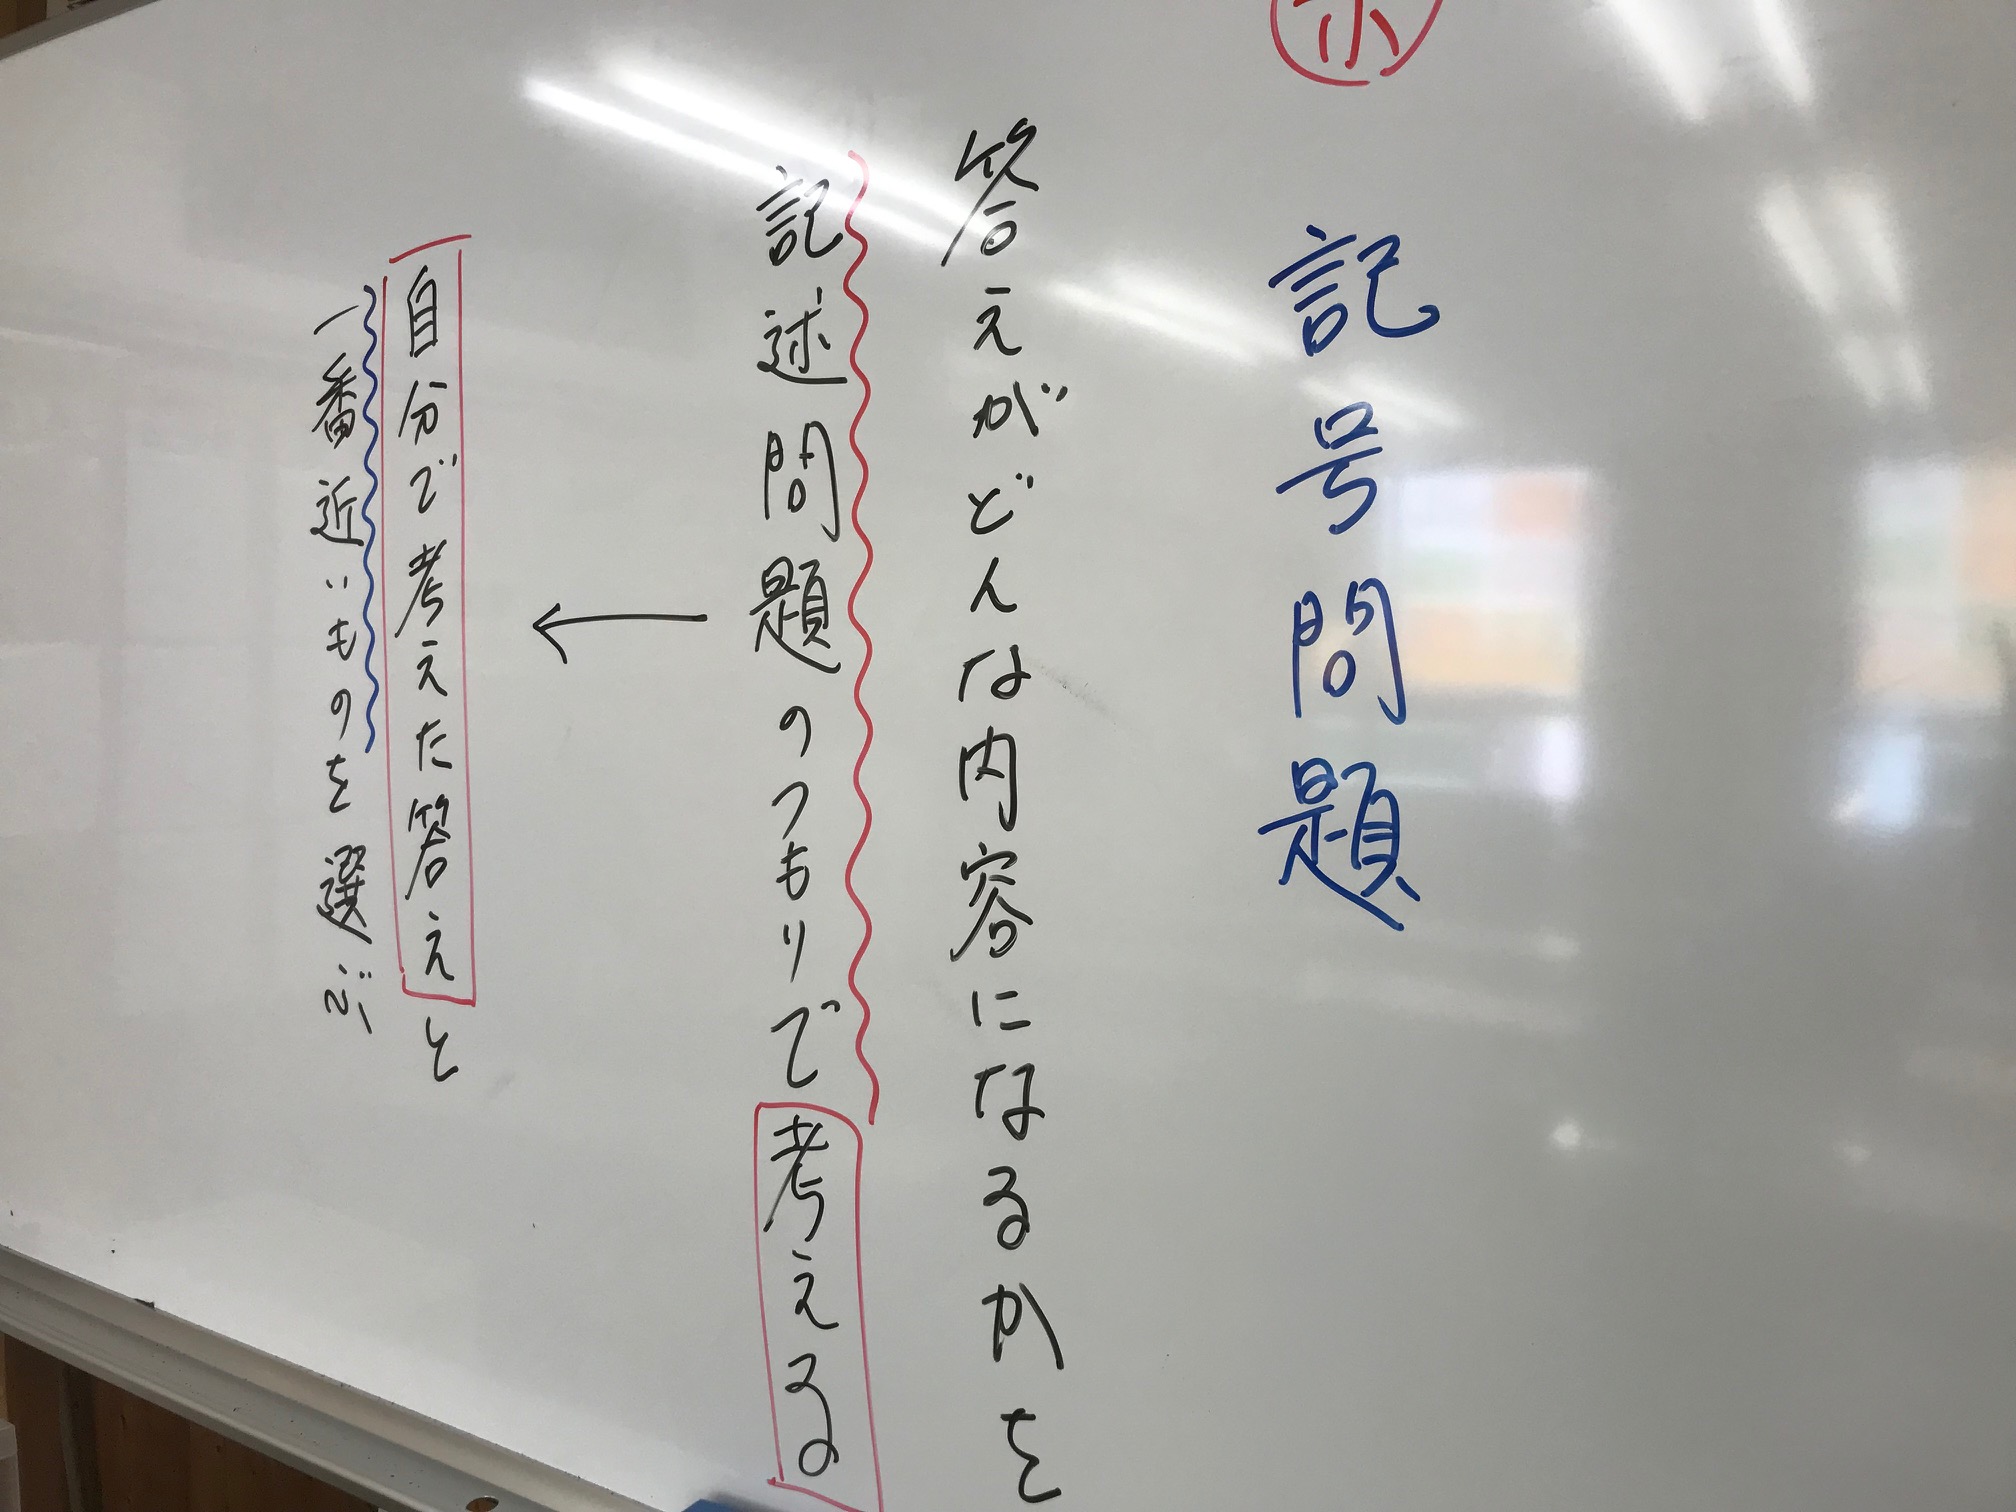 記号問題
答えがどんな内容になるかを
記述問題のつもりで考える
自分で考えた答えと
一番近いものを選ぶ